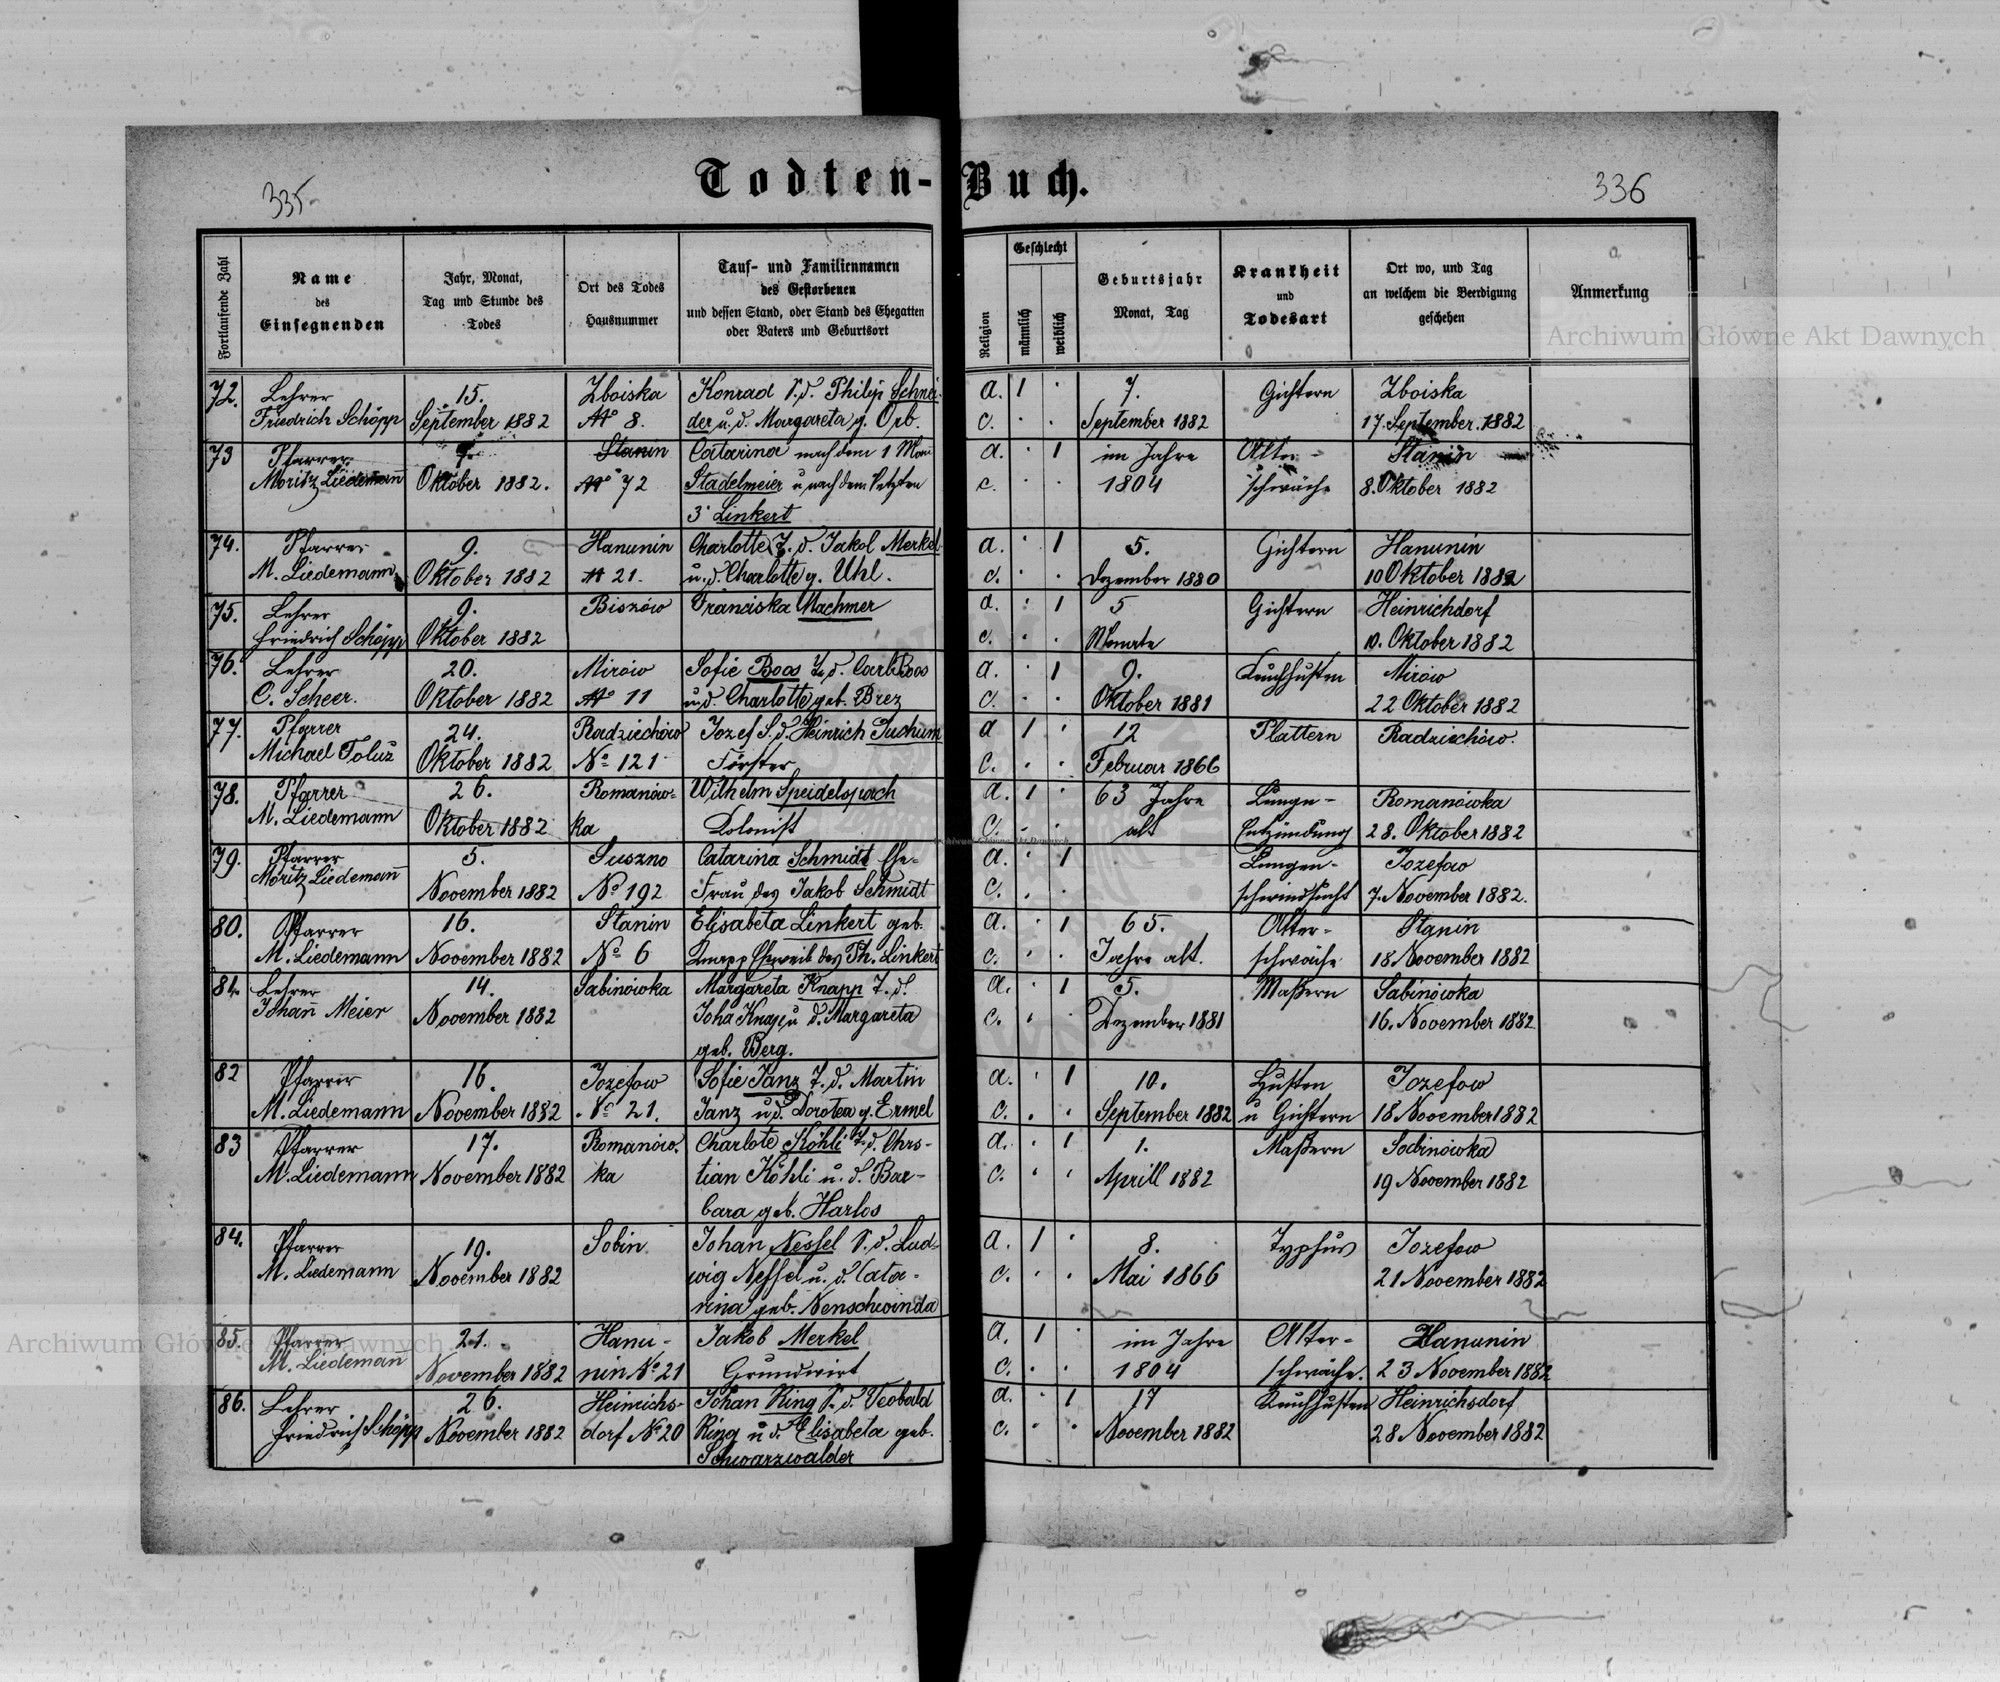 Todten-Buch.
335.
336
Fortlaufende Zahl
Name
des
Einsegnenden
Jahr, Monat,
Tag und Stunde des
Todes
Ort des Todes
Hausnummer
Tauf- und Familiennamen
des Gestorbenen
und dessen Stand, oder Stand des Ehegatten
oder Vaters und Geburtsort
Religion
Geschlecht
männlich
weiblich
Geburtsjahr
Monat, Tag
Krankheit
und
Todesart
Ort wo, und Tag
an welchem die Beerdigung
geschehen
Anmerkung
Archiwum Główne Akt Dawnych
72. Lehrer 15. Zboiska Konrad S. d. Philip Schnei- a. 1 · 7. Gichtern Zboiska
Friedrich Schöpp September 1882 No 8. der u. d. Margareta g. Orb. c. · · September 1882 17. September. 1882
73 Pfarrer 7. Stanin Catarina nach dem 1 Mann a. · 1 im Jahre Alter- Stanin
Moritz Liedemann Oktober 1882. No 72 Stadelmeier u nach dem letzten c. · · 1804 schwäche 8. Oktober 1882
3' Linkert
74. Pfarrer 9. Hanunin Charlotte T. d. Jakob Merkel a. · 1 5. Gichtern Hanunin
M. Liedemann Oktober 1882 No 21. u. d. Charlotte g. Uhl. c. · · Dezember 1880 10 Oktober 1882
75. Lehrer 9. Biszów Franciska Machmer a. · 1 5 Gichtern Heinrichdorf
Friedrich Schöpp Oktober 1882 c. · · Monate 10. Oktober 1882
76. Lehrer 20. Mirów Sofie Boos T. d. Carl Boos a. · 1 9. Keuchhusten Mirow
C. Scheer. Oktober 1882 No 11 u. d. Charlotte geb. Brez c. · · Oktober 1881 22 Oktober 1882
77. Pfarrer 24. Radziechów Jozef S. d. Heinrich Juchum a 1 · 12 Blattern Radziechów.
Michael Toluš Oktober 1882 No 121 Förster c. · · Februar 1866
78. Pfarrer 26. Romanów- Wilhelm Speidelspach a. 1 · 63 Jahre Lungen- Romanówka
M. Liedemann Oktober 1882 ka Colonist c. · · alt Entzündung 28. Oktober 1882
Archiwum Główne Akt Dawnych
79. Pfarrer 5. Suszno Catarina Schmidt Ehe- a. · 1 Lungen- Jozefow
Moritz Liedemann November 1882 No 192 Frau des Jakob Schmidt c. · · schwindsucht 7. November 1882.
80. Pfarrer 16. Stanin Elisabeta Linkert geb. a. · 1 65. Alter- Stanin
M. Liedemann November 1882 No 6 Knapp Eheweib des Ph. Linkert c. · · Jahre alt. schwäche 18 November 1882
81. Lehrer 14. Sabinówka Margareta Knapp T. d. a. · 1 5. Maßern Sabinówka
Johann Meier November 1882 Joha Knapp u d. Margareta c. · · Dezember 1881 16. November 1882
geb. Berg.
82 Pfarrer 16. Jozefow Sofie Janz T. d. Martin a. · 1 10. Husten Jozefow
M. Liedemann November 1882 No 21. Janz u. d. Dorotea g. Ermel c. · · September 1882 u Gichtern 18 November 1882
83 Pfarrer 17. Romanów- Charlote Köhli T. d. Chrs- a. · 1 1. Maßern Sabinówka
M. Liedemann November 1882 ka tian Köhli u. d. Bar- c. · · Aprill 1882 19 November 1882
bara geb. Harlos
84. Pfarrer 19. Sobin Johan Nessel S. d. Lud- a. 1 · 8. Typhus Jozefow
M. Liedemann November 1882 wig Nessel u. d. Cata- c. · · Mai 1866 21 November 1882
rina geb. Nenschwinda
85. Pfarrer 21. Hanu- Jakob Merkel a. 1 · im Jahre Alter- Hanunin
M. Liedemann November 1882 nin No 21 Grundwirt c. · · 1804 schwäche. 23 November 1882
Archiwum Główne Akt Dawnych
86. Lehrer 26. Heinrichs- Johan Ring S. d. Teobald a. · 1 17 Keuchhusten Heinrichsdorf
Friedrich Schöpp November 1882 dorf No 20 Ring u d. Elisabeta geb. c. · · November 1882 28 November 1882
Schwarzwalder